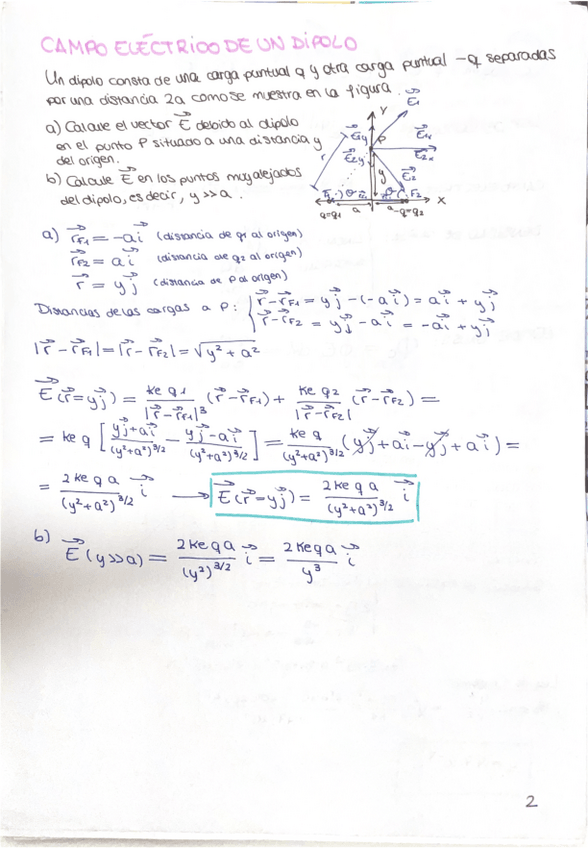 CAMPO ELÉCTRICO DE UN DIPOLO
Un dipolo consta de una carga puntual q y otra carga puntual -q separadas
por una distancia 2a como se muestra en la figura.
a) Calcule el vector E⃗ debido al dipolo
en el punto P situado a una distancia y
del origen.
b) Calcule E⃗ en los puntos muy alejados
del dipolo, es decir, y >> a.
Y
E⃗₁
P
E⃗₂
r
y
θ
θ
F₂
X
q=q₁
a
a
-q=q₂
a) r⃗F1 = -a i⃗ (distancia de q1 al origen)
r⃗F2 = a i⃗ (distancia de q2 al origen)
r⃗ = y j⃗ (distancia de P al origen)
Distancias de las cargas a P: { r⃗ - r⃗F1 = y j⃗ - (-a i⃗) = a i⃗ + y j⃗
r⃗ - r⃗F2 = y j⃗ - a i⃗ = -a i⃗ + y j⃗
|r⃗ - r⃗F1| = |r⃗ - r⃗F2| = √(y² + a²)
E⃗(r⃗ = y j⃗) = Ke q1 / |r⃗ - r⃗F1|³ (r⃗ - r⃗F1) + Ke q2 / |r⃗ - r⃗F2| (r⃗ - r⃗F2) =
= Ke q [ (y j⃗ + a i⃗) / (y²+a²)^3/2 - (y j⃗ - a i⃗) / (y²+a²)^3/2 ] = Ke q / (y²+a²)^3/2 (y j⃗ + a i⃗ - y j⃗ + a i⃗) =
= 2 Ke q a / (y²+a²)^3/2 i⃗ → E⃗(r⃗ = y j⃗) = 2 Ke q a / (y²+a²)^3/2 i⃗
b) E⃗(y >> a) = 2 Ke q a / (y²)^3/2 i⃗ = 2 Ke q a / y³ i⃗
2